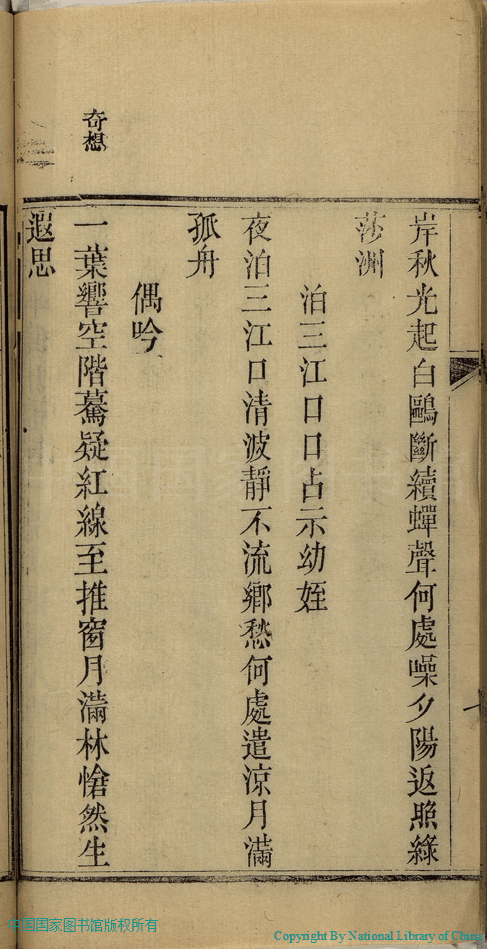 岸秋光起白鷗斷續蟬聲何處噪夕陽返照綠
莎洲
泊三江口口占示幼姪
夜泊三江口清波靜不流鄉愁何處遣涼月滿
孤舟
偶吟
一葉響空階驀疑紅線至推窗月滿林愴然生
遐思
奇想
中国国家图书馆版权所有
Copyright By National Library of China